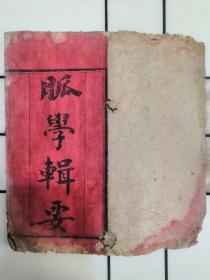 脈學輯要